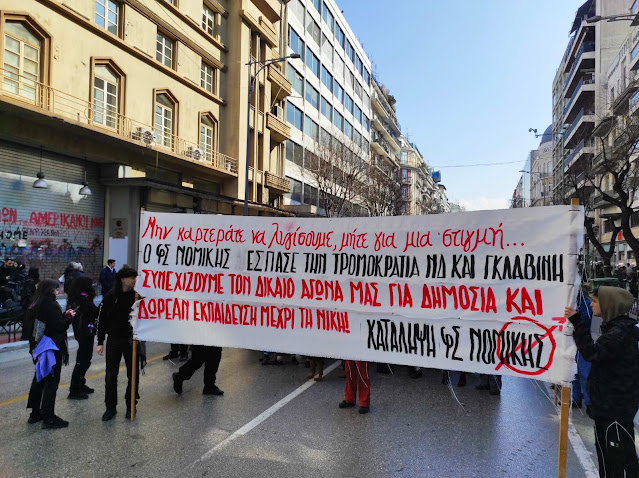 Μην καρτεράτε να λυγίσουμε, μήτε για μια στιγμή...
Ο ΦΣ ΝΟΜΙΚΗΣ ΕΣΠΑΣΕ ΤΗΝ ΤΡΟΜΟΚΡΑΤΙΑ ΝΔ ΚΑΙ ΓΚΛΑΒΙΝΗ
ΣΥΝΕΧΙΖΟΥΜΕ ΤΟΝ ΔΙΚΑΙΟ ΑΓΩΝΑ ΜΑΣ ΓΙΑ ΔΗΜΟΣΙΑ ΚΑΙ
ΔΩΡΕΑΝ ΕΚΠΑΙΔΕΥΣΗ ΜΕΧΡΙ ΤΗ ΝΙΚΗ!
ΚΑΤΑΛΗΨΗ ΦΣ ΝΟΜΙΚΗΣ
ΑΜΕΡΙΚΑΝ
HOME